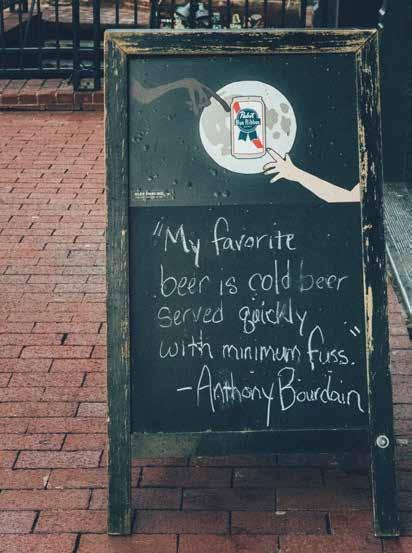 Pabst
Blue Ribbon
"My favorite
beer is cold beer
served quickly
with minimum fuss."
-Anthony Bourdain